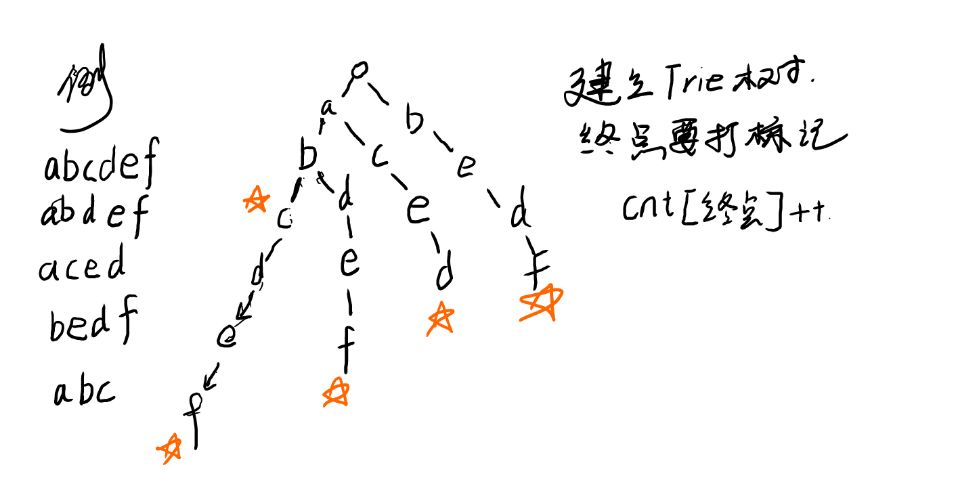 例
abcdef
abdef
aced
bedf
abc
o
a b
b c e
c d e d
d e d F
e f
f
建立Trie权对.
终点要打标记
cnt[终点]++.